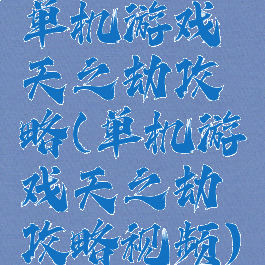 单机游戏
天之劫攻
略(单机游
戏天之劫
攻略视频)